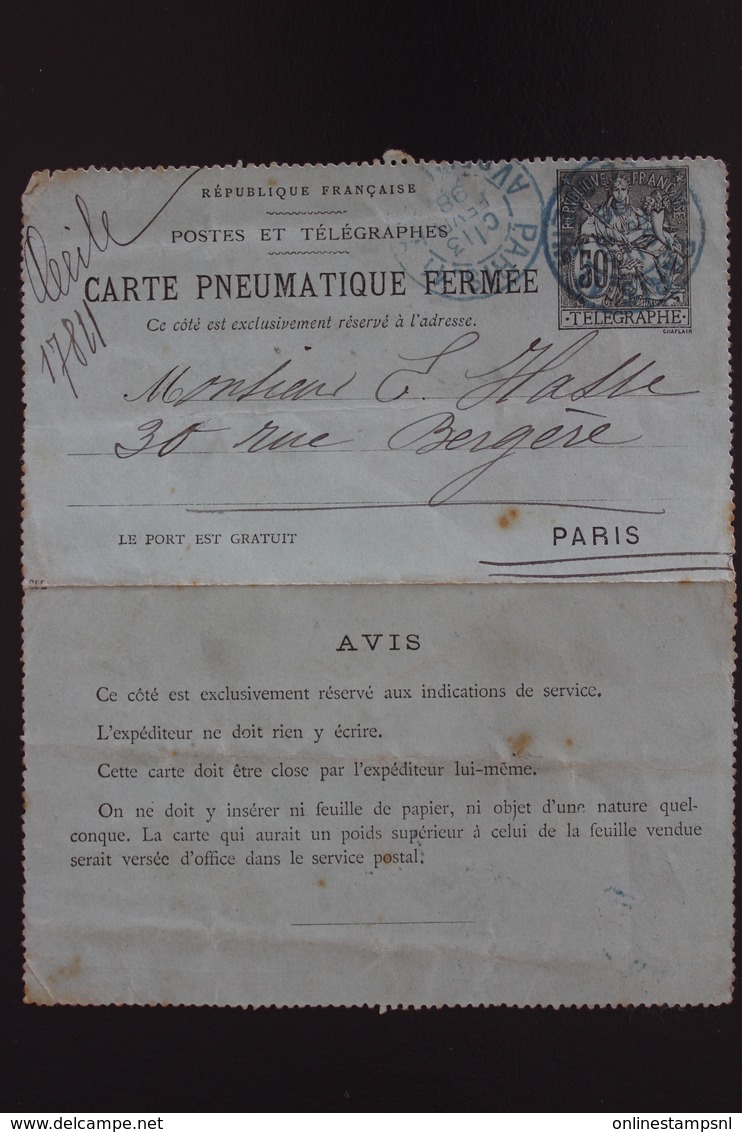 RÉPUBLIQUE FRANÇAISE
POSTES ET TÉLÉGRAPHES
CARTE PNEUMATIQUE FERMÉE
Ce côté est exclusivement réservé à l'adresse.
RÉPUBLIQUE FRANÇAISE
50
·TÉLÉGRAPHE·
CHAPLAIN
PARIS
98
17811
Monsieur E. Hasse
30 rue Bergère
LE PORT EST GRATUIT
PARIS
AVIS
Ce côté est exclusivement réservé aux indications de service.
L'expéditeur ne doit rien y écrire.
Cette carte doit être close par l'expéditeur lui-même.
On ne doit y insérer ni feuille de papier, ni objet d'une nature quel-
conque. La carte qui aurait un poids supérieur à celui de la feuille vendue
serait versée d'office dans le service postal.
www.delcampe.net
onlinestampsnl